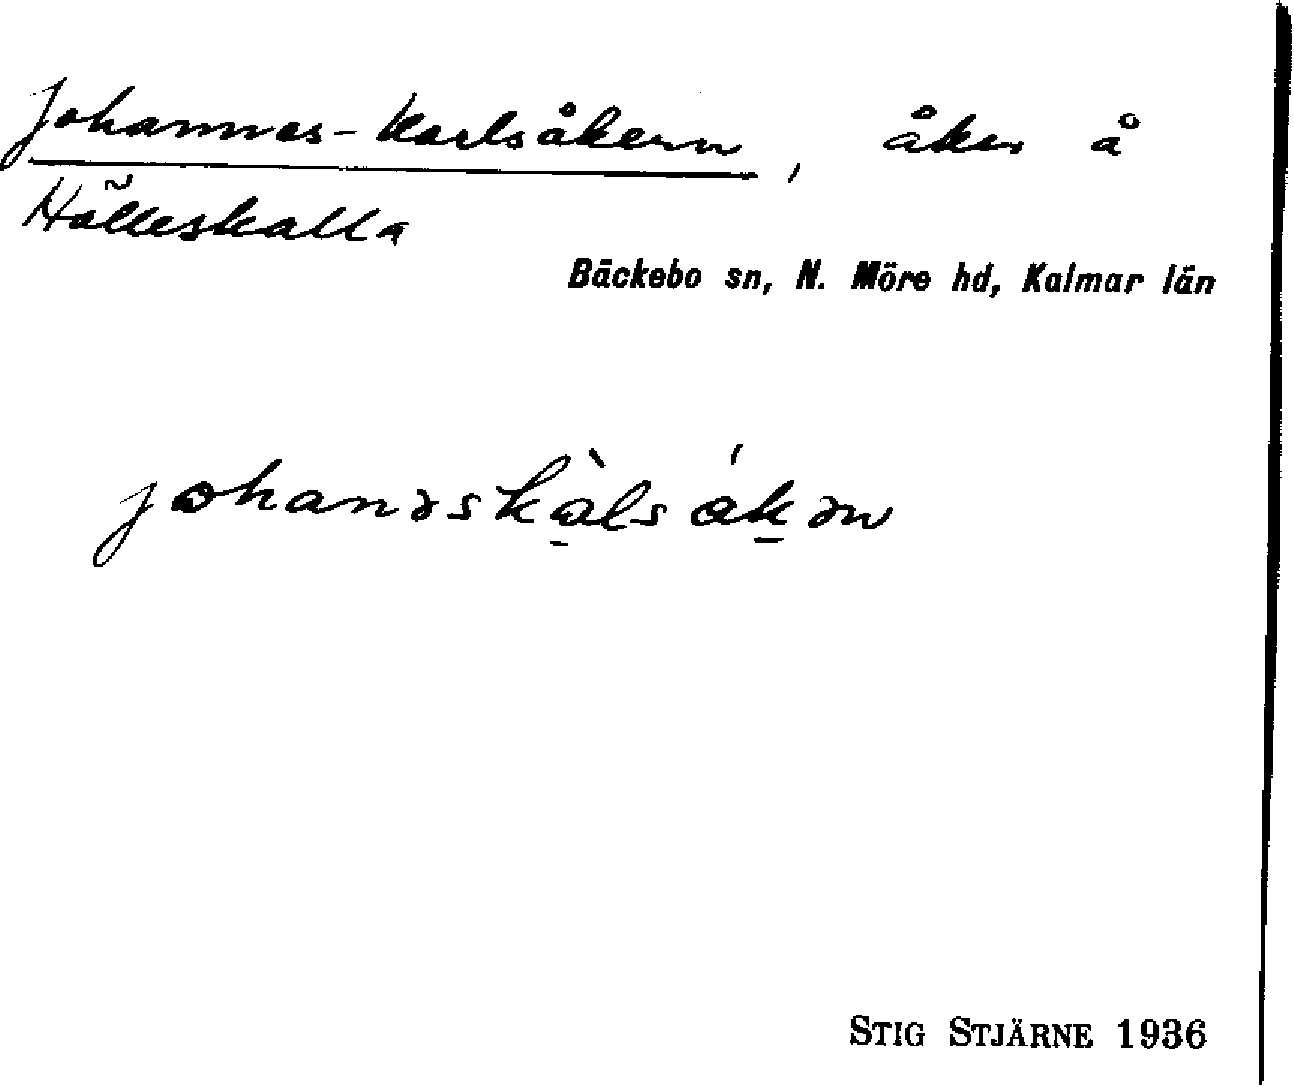 Johannes-Karlsåkern, åker å
Hälleskalla
Bäckebo sn, N. Möre hd, Kalmar län
johanəskàlsákən
STIG STJÄRNE 1936